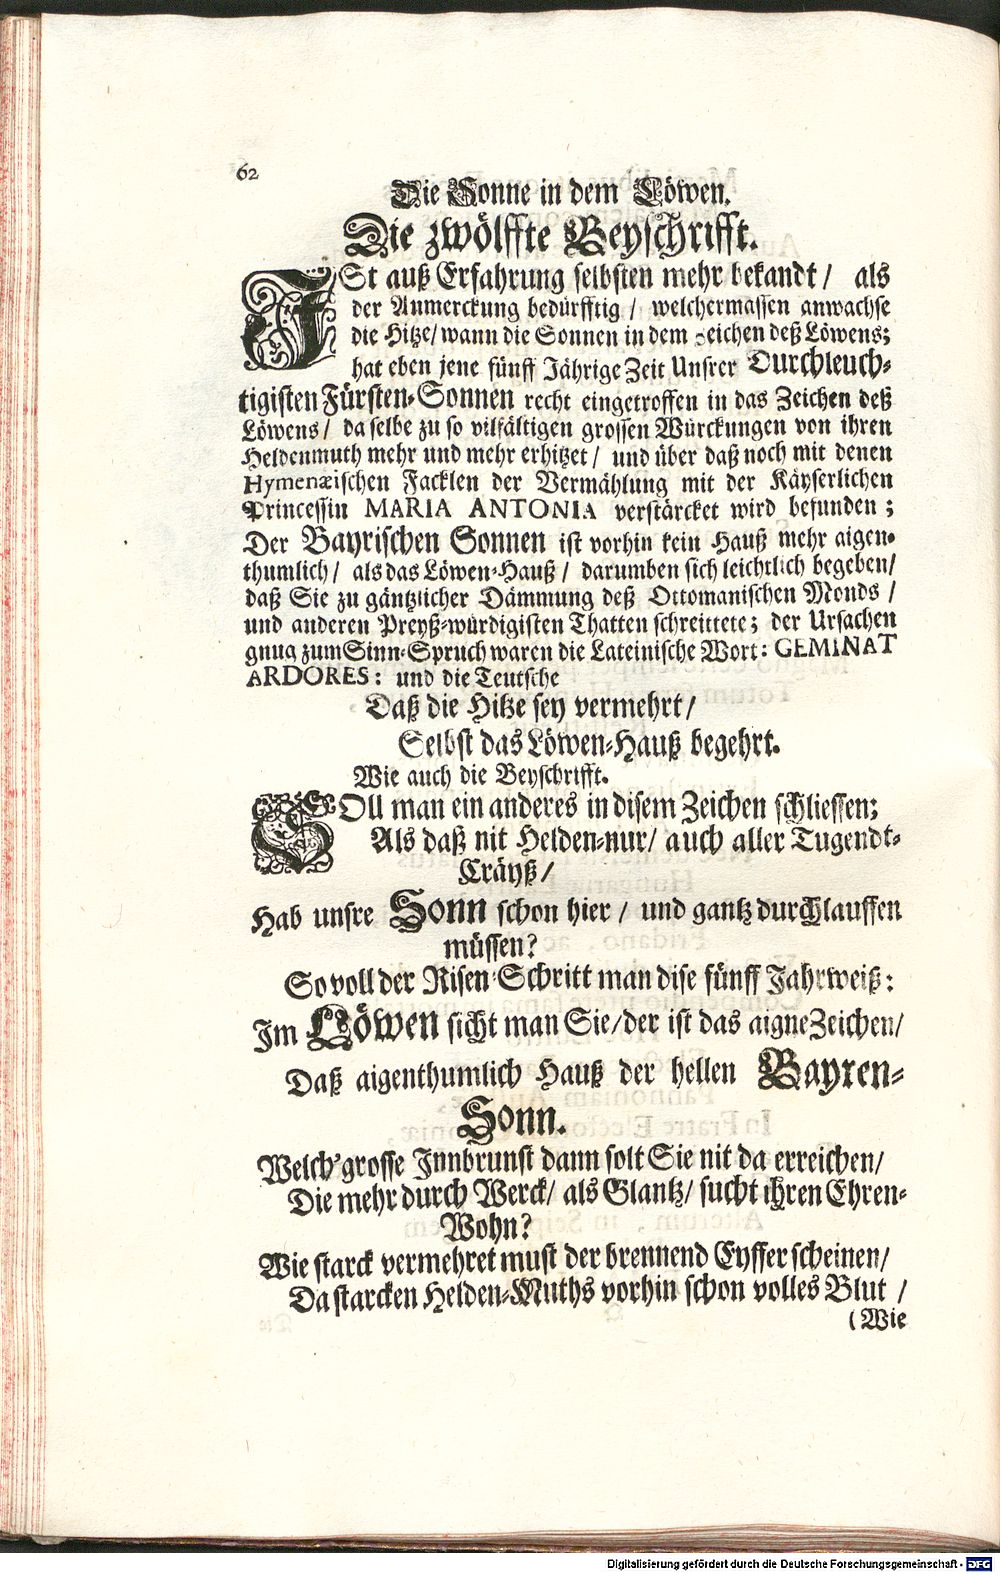 62
Die Sonne in dem Löwen.
Die zwölffte Beyschrifft.
ISt auß Erfahrung selbsten mehr bekandt / als
der Anmerckung bedürfftig / welchermassen anwachse
die Hitze / wann die Sonnen in dem Zeichen deß Löwens;
hat eben jene fünff Jährige Zeit Unsrer Durchleuch-
tigisten Fürsten-Sonnen recht eingetroffen in das Zeichen deß
Löwens / da selbe zu so vilfältigen grossen Würckungen von ihren
Heldenmuth mehr und mehr erhitzet / und über daß noch mit denen
Hymenæischen Facklen der Vermählung mit der Käyserlichen
Princessin MARIA ANTONIA verstärcket wird befunden;
Der Bayrischen Sonnen ist vorhin kein Hauß mehr aigen-
thumlich / als das Löwen-Hauß / darumben sich leichtlich begeben /
daß Sie zu gäntzlicher Dämmung deß Ottomanischen Monds /
und anderen Preyß-würdigisten Thatten schreittete; der Ursachen
gnug zum Sinn-Spruch waren die Lateinische Wort: GEMINAT
ARDORES: und die Teutsche
Daß die Hitze sey vermehrt /
Selbst das Löwen-Hauß begehrt.
Wie auch die Beyschrifft.
SOll man ein anderes in disem Zeichen schliessen;
Als daß nit Helden-nur / auch aller Tugendt-
Cräyß /
Hab unsre Sonn schon hier / und gantz durchlauffen
müssen?
So voll der Risen-Schritt man dise fünff Jahr weiß:
Im Löwen sicht man Sie / der ist das aigne Zeichen /
Daß aigenthumlich Hauß der hellen Bayren-
Sonn.
Welch' grosse Innbrunst dann solt Sie nit da erreichen /
Die mehr durch Werck / als Glantz / sucht ihren Ehren-
Wohn?
Wie starck vermehret must der brennend Eyffer scheinen /
Da starcken Helden-Muths vorhin schon volles Blut /
(Wie
Digitalisierung gefördert durch die Deutsche Forschungsgemeinschaft - DFG